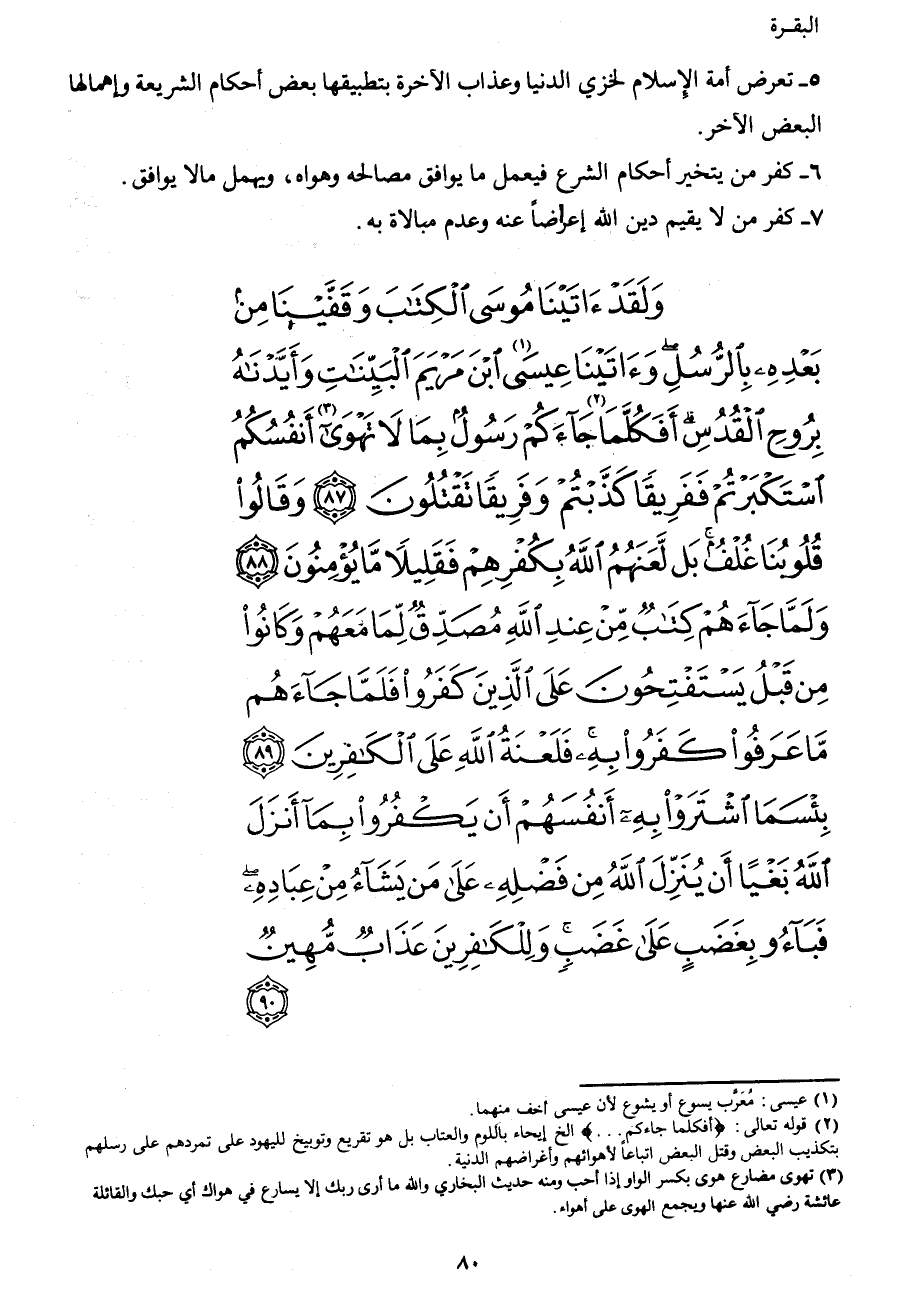 البقـرة
٥ـ تعرض أمة الإسلام لخزي الدنيا وعذاب الآخرة بتطبيقها بعض أحكام الشريعة وإهمالها
البعض الآخر.
٦ـ كفر من يتخير أحكام الشرع فيعمل ما يوافق مصالحه وهواه، ويهمل مالا يوافق.
٧ـ كفر من لا يقيم دين الله إعراضاً عنه وعدم مبالاة به.
وَلَقَدْ ءَاتَيْنَا مُوسَى ٱلْكِتَٰبَ وَقَفَّيْنَا مِنۢ
بَعْدِهِۦ بِٱلرُّسُلِۖ وَءَاتَيْنَا عِيسَى(١) ٱبْنَ مَرْيَمَ ٱلْبَيِّنَٰتِ وَأَيَّدْنَٰهُ
بِرُوحِ ٱلْقُدُسِۗ أَفَكُلَّمَا(٢) جَآءَكُمْ رَسُولٌۢ بِمَا لَا تَهْوَىٰٓ(٣) أَنفُسُكُمُ
ٱسْتَكْبَرْتُمْ فَفَرِيقًا كَذَّبْتُمْ وَفَرِيقًا تَقْتُلُونَ ٨٧ وَقَالُوا۟
قُلُوبُنَا غُلْفٌۢۚ بَل لَّعَنَهُمُ ٱللَّهُ بِكُفْرِهِمْ فَقَلِيلًا مَّا يُؤْمِنُونَ ٨٨
وَلَمَّا جَآءَهُمْ كِتَٰبٌ مِّنْ عِندِ ٱللَّهِ مُصَدِّقٌ لِّمَا مَعَهُمْ وَكَانُوا۟
مِن قَبْلُ يَسْتَفْتِحُونَ عَلَى ٱلَّذِينَ كَفَرُوا۟ فَلَمَّا جَآءَهُم
مَّا عَرَفُوا۟ كَفَرُوا۟ بِهِۦۚ فَلَعْنَةُ ٱللَّهِ عَلَى ٱلْكَٰفِرِينَ ٨٩
بِئْسَمَا ٱشْتَرَوْا۟ بِهِۦٓ أَنفُسَهُمْ أَن يَكْفُرُوا۟ بِمَآ أَنزَلَ
ٱللَّهُ بَغْيًا أَن يُنَزِّلَ ٱللَّهُ مِن فَضْلِهِۦ عَلَىٰ مَن يَشَآءُ مِنْ عِبَادِهِۦۖ
فَبَآءُو بِغَضَبٍ عَلَىٰ غَضَبٍۚ وَلِلْكَٰفِرِينَ عَذَابٌ مُّهِينٌ
٩٠
(١) عيسى: مُعَرَّب يسوع أو يشوع لأن عيسى أخف منهما.
(٢) قوله تعالى: ﴿أفكلما جاءكم...﴾ الخ إيحاء باللوم والعتاب بل هو تقريع وتوبيخ لليهود على تمردهم على رسلهم
بتكذيب البعض وقتل البعض اتباعاً لأهوائهم وأغراضهم الدنية.
(٣) تهوى مضارع هوى بكسر الواو إذا أحب ومنه حديث البخاري والله ما أرى ربك إلا يسارع في هواك أي حبك والقائلة
عائشة رضي الله عنها ويجمع الهوى على أهواء.
٨٠